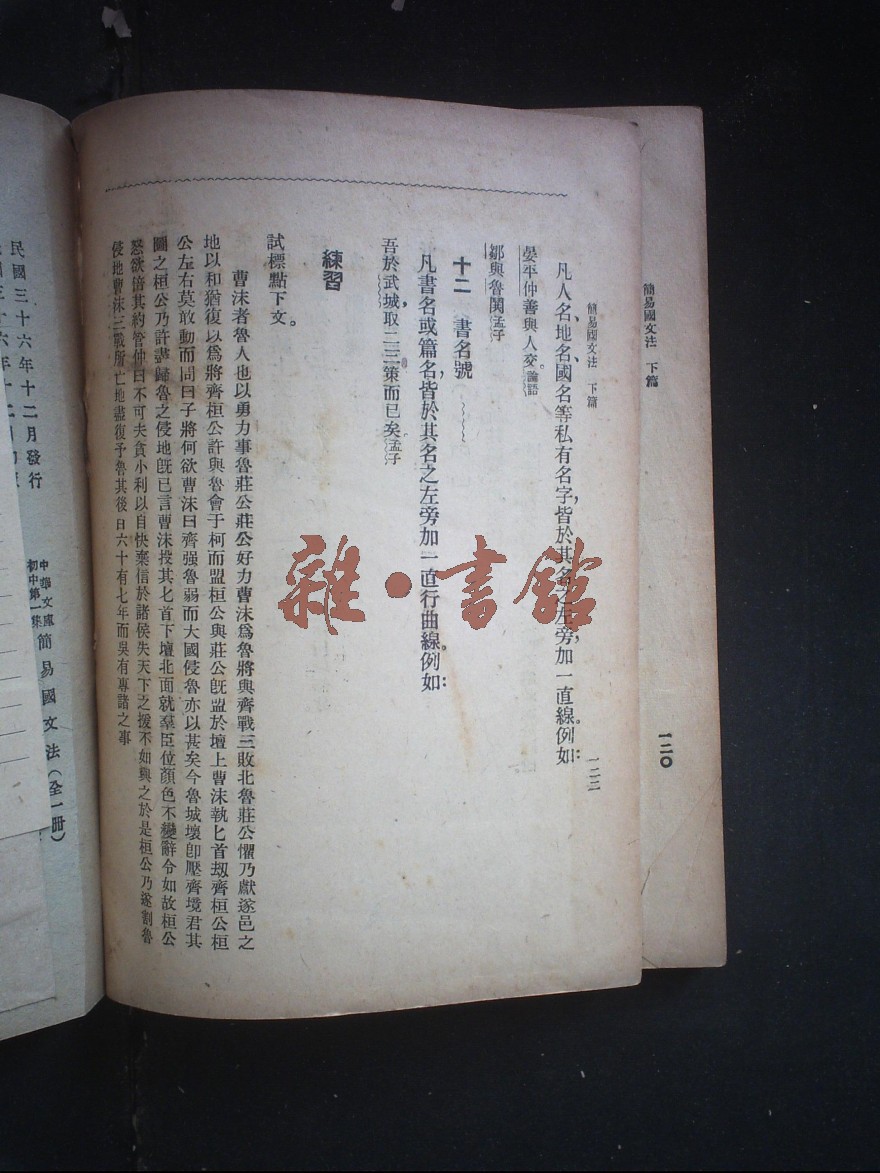 簡易國文法 下篇
一二〇
簡易國文法 下篇
一二二
凡人名、地名、國名等私有名字，皆於其名之左旁加一直線。例如：
晏平仲善與人交。論語
鄒與魯鬨孟子
十二 書名號
凡書名或篇名，皆於其名之左旁加一直行曲線。例如：
吾於武城，取二三策而已矣孟子
練習
試標點下文。
曹沫者魯人也以勇力事魯莊公莊公好力曹沫爲魯將與齊戰三敗北魯莊公懼乃獻遂邑之
地以和猶復以爲將齊桓公許與魯會于柯而盟桓公與莊公旣盟於壇上曹沫執匕首刼齊桓公桓
公左右莫敢動而問曰子將何欲曹沫曰齊强魯弱而大國侵魯亦以甚矣今魯城壞卽壓齊境君其
圖之桓公乃許盡歸魯之侵地旣已言曹沫投其匕首下壇北面就羣臣位顏色不變辭令如故桓公
怒欲倍其約管仲曰不可夫貪小利以自快棄信於諸侯失天下之援不如與之於是桓公乃遂割魯
侵地曹沫三戰所亡地盡復予魯其後曰六十有七年而吳有專諸之事
雜·書館
民國三十六年十二月發行
中華文庫
初中第一集
簡易國文法（全一册）